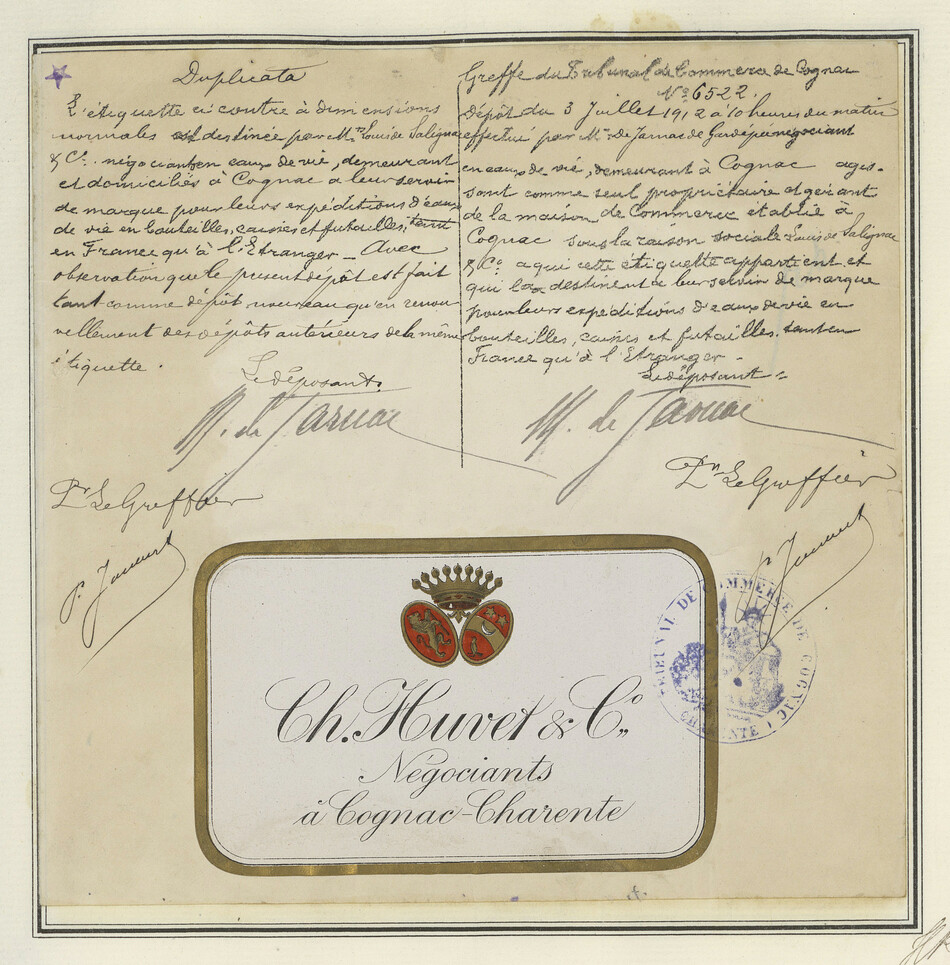 Duplicata
L'étiquette ci contre à dimensions
normales est destinée par Mrs Louis de Salignac
& Co. négociants en eaux de vie, demeurant
et domiciliés à Cognac a leur servir
de marque pour leurs expéditions d'eaux
de vie en bouteilles, caisses et futailles, tant
en France qu'à l'Etranger _ Avec
observation que le présent dépôt est fait
tant comme dépôt nouveau qu'en renou-
vellement des dépôts antérieurs de la même
étiquette.
Le déposant.
M. de Jarnac
Pr Le Greffier
Greffe du Tribunal de Commerce de Cognac
No 6522.
Dépôt du 3 Juillet 1912 à 10 heures du matin
effectué par Mr de Jarnac de Gardépée négociant
en eaux de vie, demeurant à Cognac agis-
sant comme seul propriétaire et gérant
de la maison de Commerce établie à
Cognac sous la raison sociale Louis de Salignac
& Co. a qui cette étiquette appartient et
qui la destinent a leur servir de marque
pour leurs expéditions d'eaux de vie en
bouteilles, caisses et futailles, tant en
France qu'à l'Etranger -
Le déposant =
M. de Jarnac
Pr Le Greffier
Ch. Huvet & Co.
Négociants
à Cognac-Charente
TRIBUNAL DE COMMERCE DE COGNAC
CHARENTE